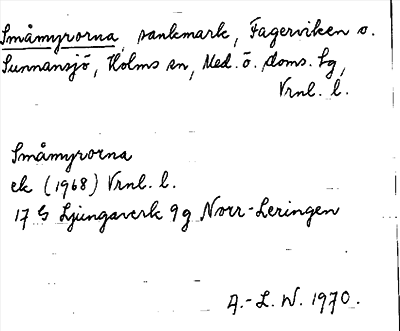 Småmyrorna, sankmark, Fagerviken o.
Sunnansjö, Holms sn, Med. ö. doms. tg,
Vrnl. l.
Småmyrorna
ek (1968) Vrnl. l.
17 G Ljungaverk 9g Norr-Leringen
A.-L. W. 1970.